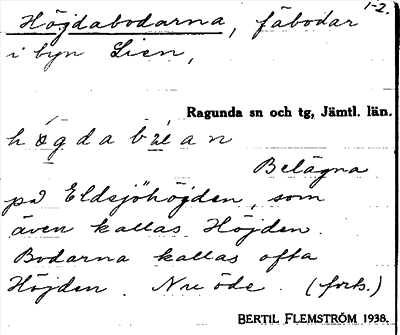 1-2.
Höjdabodarna, fäbodar
i byn Lien,
Ragunda sn och tg, Jämtl. län.
Belägna
på Eldsjöhöjden, som
även kallas Höjden.
Bodarna kallas ofta
Höjden. Nu öde. (forts.)
BERTIL FLEMSTRÖM 1938.